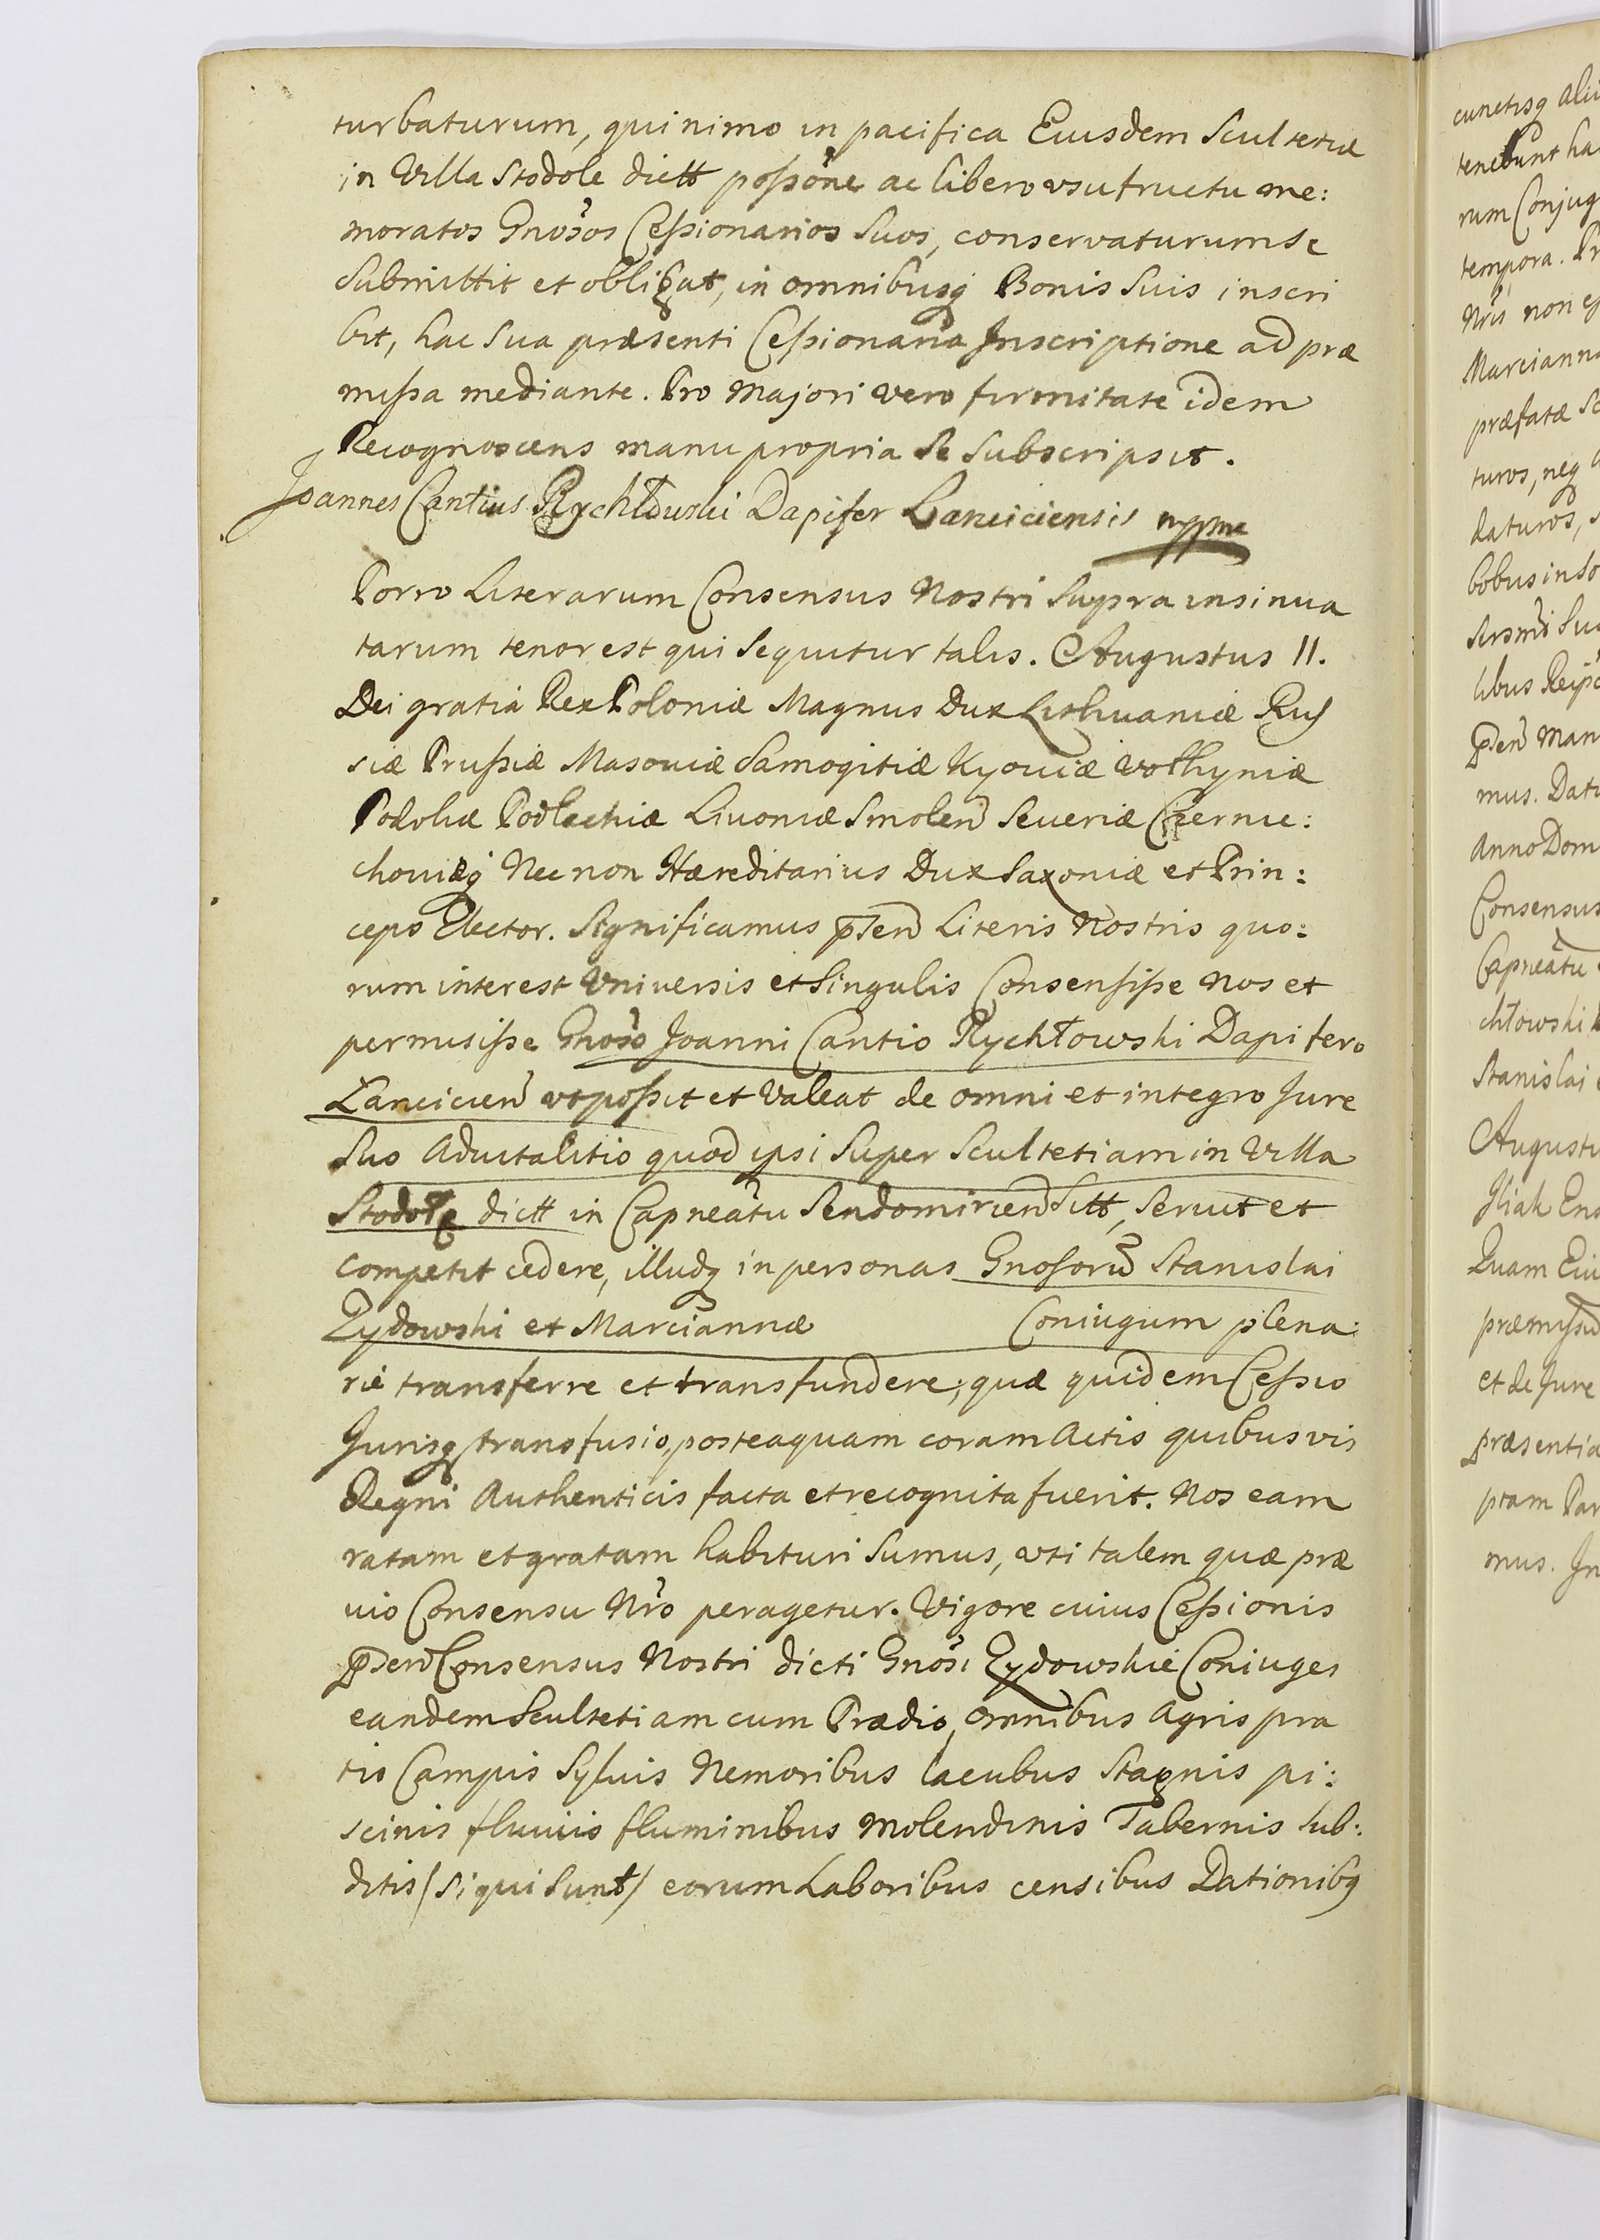 turbaturum, quinimo in pacifica Eiusdem Scultetiæ
in Villa Stodole dictt poßone ac libero usufructu me:
moratos Gnosos Ceßionarios Suos, conservaturum se
Submittit et obligat, in omnibusq Bonis Suis inscri
bit, hac Sua præsenti Ceßionaria Inscriptione ad præ
mißa mediante. Pro Majori vero firmitate idem
Recognoscens manu propria Se Subscripsit.
Joannes Cantius Rychłowski Dapifer Lanciciensis mppa
Porro Literarum Consensus Nostri Supra insinua
tarum tenor est qui Sequitur talis. Augustus II.
Dei gratia Rex Poloniæ Magnus Dux Lithuaniæ Rus
siæ Prußiæ Masouiæ Samogitiæ Kyouiæ Volhyniæ
Podoliæ Podlachiæ Liuoniæ Smolen Seueriæ Czernie:
chouiæq Nec non Hæreditarius Dux Saxoniæ et Prin:
ceps Elector. Significamus pnten Literis Nostris quo:
rum interest Vniuersis et Singulis Consensiße Nos et
permisiße Gnoso Joanni Cantio Rychłowski Dapifero
Lancicien vt poßit et Valeat de omni et integro Jure
Suo Aduitalitio quod ipsi Super Scultetiam in Villa
Stodole dictt in Capneatu Sendomirien Sitt, Seruit et
competit cedere, illudq in personas Gnosorum Stanislai
Zydowski et Marciannæ Coniugum plena:
rie transferre et transfundere; quæ quidem Ceßio
Jurisq transfusio, posteaquam coram Actis quibusvis
Regni Authenticis facta et recognita fuerit. Nos eam
ratam et gratam habituri Sumus, vti talem quæ præ
uio Consensu Nro peragetur. Vigore cuius Ceßionis
pnten Consensus Nostri dicti Gnosi Zydowskie Coniuges
eandem Scultetiam cum Prædio, omnibus Agris pra
tis Campis Syluis Nemoribus lacubus Stagnis pi:
scinis fluuiis fluminibus Molendinis Tabernis Sub:
ditis /Si qui Sunt/ eorum Laboribus censibus Dationibq
cunctisq Alii
tenebunt ha
rum Conjug
tempora. Pr
Nris non
Marciann
præfatæ Sc
turos, neq
daturos,
bobus in
libus
pnten Man
mus. Dat
Anno Dom
Consensus
Capneatu
chłowski
Stanislai
Augustu
Quam
et de Jure
præsentia
ptam Par
mus. In